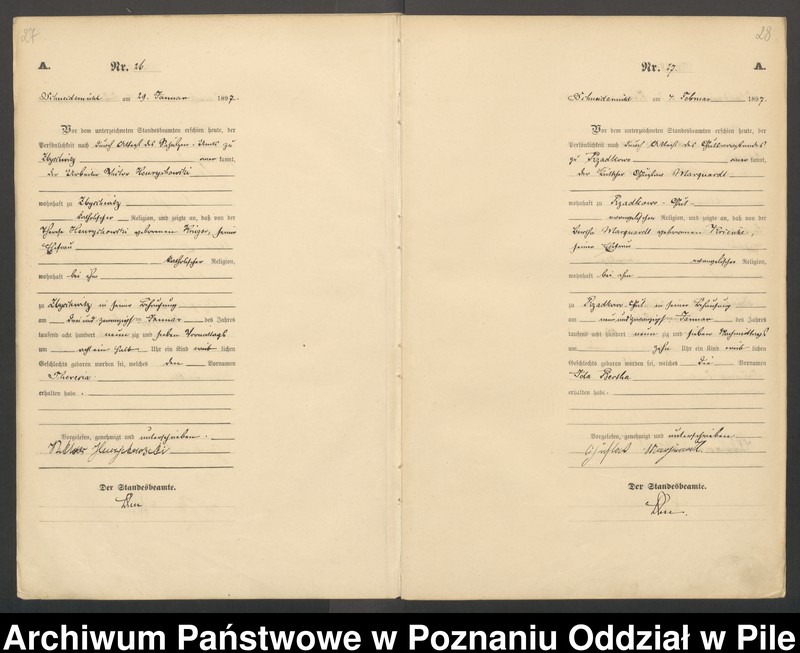 27
A.
Nr. 26
Schneidemühl am 29. Januar 1897.
Vor dem unterzeichneten Standesbeamten erschien heute, der
Persönlichkeit nach durch Attest des Schulzen-Amts zu
kannt,
der Arbeiter
wohnhaft zu
katholischer Religion, und zeigte an, daß von der
geborenen Krüger, seiner
Ehefrau
katholischer Religion,
wohnhaft bei ihm
zu in seiner Behausung
am drei und zwanzigsten Januar des Jahres
tausend acht hundert neun zig und sieben Vormittags
um acht ein halb Uhr ein Kind weib lichen
Geschlechts geboren worden sei, welches den Vornamen
Theresia
erhalten habe.
Vorgelesen, genehmigt und unterschrieben.
Der Standesbeamte.
28
Nr. 27.
A.
Schneidemühl am 4. Februar 1897.
Vor dem unterzeichneten Standesbeamten erschien heute, der
Persönlichkeit nach durch Attest des Gutsvorstandes
zu Rzadkowo kannt,
der Marquardt
wohnhaft zu Rzadkowo-Gut
evangelischer Religion, und zeigte an, daß von der
Bertha Marquardt geborenen Krienke,
seiner Ehefrau
evangelischer Religion,
wohnhaft bei ihm
zu Rzadkowo-Gut in seiner Behausung
am neun und zwanzigsten Januar des Jahres
tausend acht hundert neun zig und sieben Nachmittags
um zehn Uhr ein Kind weib lichen
Geschlechts geboren worden sei, welches die Vornamen
Ida Bertha
erhalten habe.
Vorgelesen, genehmigt und unterschrieben
Der Standesbeamte.
Archiwum Państwowe w Poznaniu Oddział w Pile